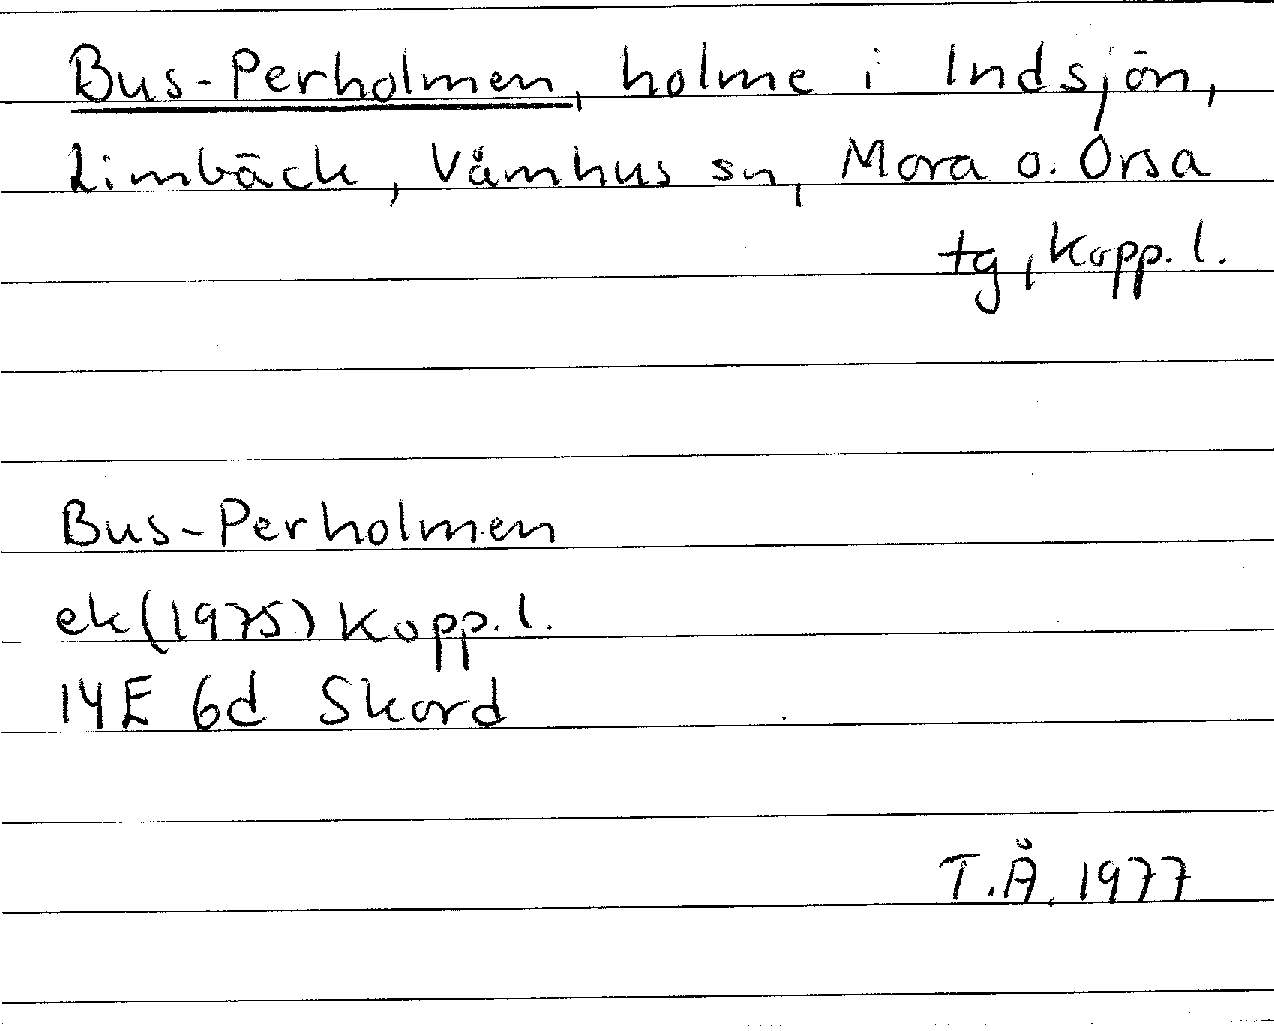 Bus-Perholmen, holme i Indsjön,
Limbäck, Våmhus sn, Mora o. Orsa
tg, Kopp. l.
Bus-Perholmen
ek (1975) Kopp. l.
14E 6d Skord
T.Å. 1977